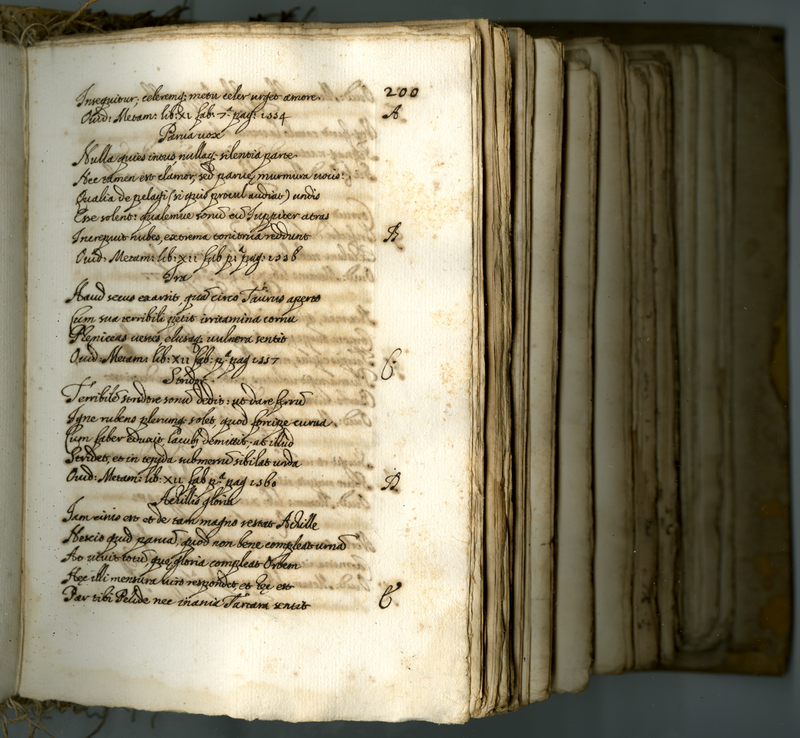 200
Insequitur; celeremq; metu celer urget amore.
Ouid: Metam: lib: XI fab: 7.ª pag: 1554
A
Parua uox
Nulla quies intus nullaq; silentia parte.
Nec tamen est clamor, sed paruę murmura uocis:
Qualia de pelagi (si quis procul audiat) undis
Esse solent: qualemue sonũ cũ Iuppiter atras
Increpuit nubes, extrema tonitrua reddunt
B
Ouid: Metam: lib: XII fab p.ª pag:
Ira
Haud secus exarsit, quã circo Taurus aperto
Cum sua terribili petit irritamina cornu
Pheniceas uestes, elusaq; uulnera sentit
Ouid: Metam: lib: XII fab: p.ª pag 1557
C
Stridor
Terribilẽ stridore sonũ dedit: ut dare ferrũ
Igne rubens plerunq; solet, quod forcipe curua
Cum faber eduxit, lacubq; demittit: at illud
Stridet, et in tepida submersũ sibilat unda
Ouid: Metam: lib: XII fab p.ª pag 1560
D
Achillis gloria
Iam cinis est et de tam magno restat Achille
Nescio quid paruũ, quod non bene compleat urnã
At uiuit totũ quę gloria compleat Orbem
Hęc illi mensura uiro respondet et hęc est
Par tibi Pelide nec inania Tartara sentit
E